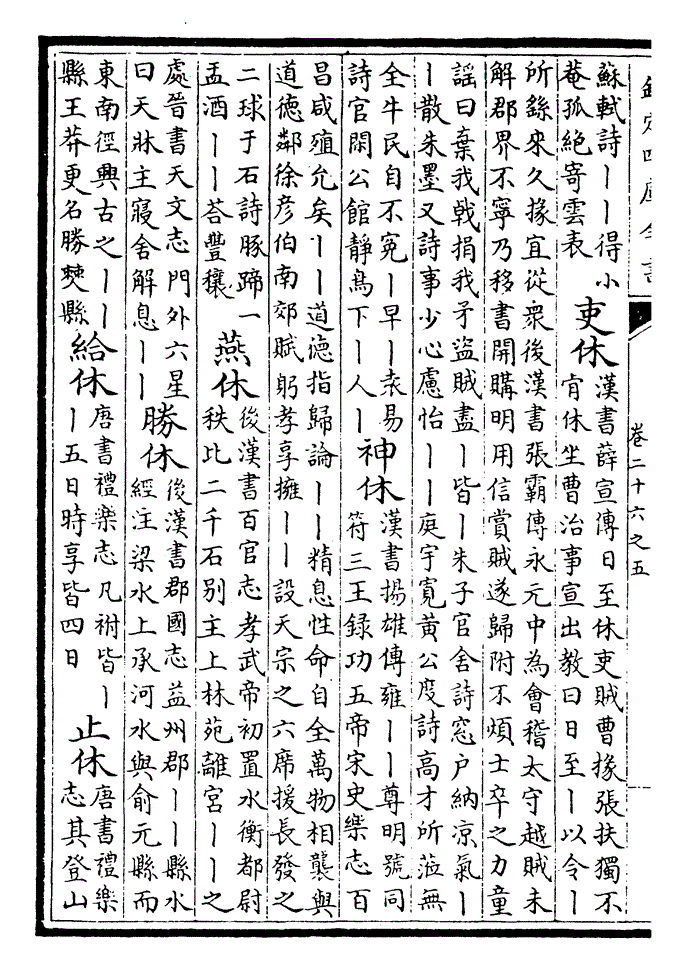 欽定四庫全書
卷二十六之五
蘇軾詩丨丨得小
菴孤絶寄雲表
吏休
漢書薛宣傳日至休吏賊曹掾張扶獨不
肯休坐曹治事宣出教曰日至丨以令丨
所繇來久掾宜從衆後漢書張霸傳永元中為會稽太守越賊未
解郡界不寧乃移書開購明用信賞賊遂歸附不煩士卒之力童
謡曰棄我戟捐我矛盗賊盡丨皆丨朱子官舍詩窓户納凉氣丨
丨散朱墨又詩事少心慮怡丨丨庭宇寛黄公度詩高才所蒞無
全牛民自不寃丨早丨袁易
詩官閑公館靜鳥下丨人丨
神休
漢書揚雄傳雍丨丨尊明號同
符三王録功五帝宋史樂志百
昌咸殖允矣丨丨道德指歸論丨丨精息性命自全萬物相襲與
道德鄰徐彦伯南郊賦躬孝享擁丨丨設天宗之六席援長發之
二球于石詩豚蹄一
盂酒丨丨荅豐穰
燕休
後漢書百官志孝武帝初置水衡都尉
秩比二千石别主上林苑離宫丨丨之
處晉書天文志門外六星
曰天牀主寢舍解息丨丨
勝休
後漢書郡國志益州郡丨丨縣水
經注梁水上承河水與俞元縣而
東南徑興古之丨丨
縣王莽更名勝僰縣
給休
唐書禮樂志凡祔皆丨
丨五日時享皆四日
止休
唐書禮樂
志其登山